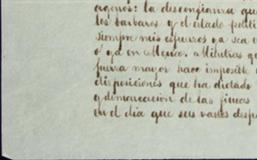 agenos: la desconfianza que
los barbaros y el estado politi
siempre mis esfuerzos ya sea e
o ya en Mexico. Mientras q
fuerza mayor hace imposible
disposiciones que ha dictado
y demarcacion de las fincas
en el dia que seis varas desp